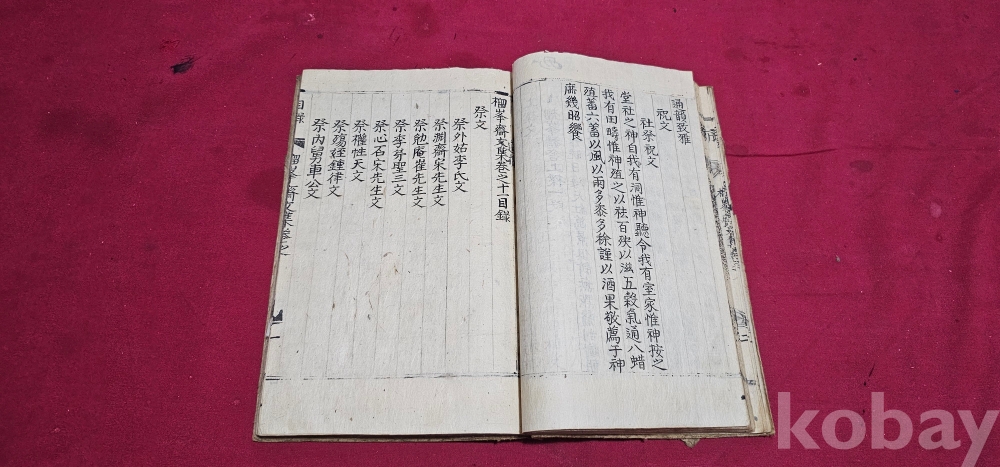 通韻致雅
祝文
社祭祝文
堂社之神自我有洞惟神聽令我有室家惟神按之
我有田疇惟神殖之以祛百殃以滋五穀氣通八蜡
殖蓄六畜以風以雨多黍多稌謹以酒果敬薦于神
庶幾昭饗
榴峯齋文集卷之十一目錄
祭文
祭外姑李氏文
祭淵齋宋先生文
祭勉庵崔先生文
祭李芬聖三文
祭心石宋先生文
祭權性天文
祭殤姪鍾律文
祭內舅車公文
目錄
一
kobay